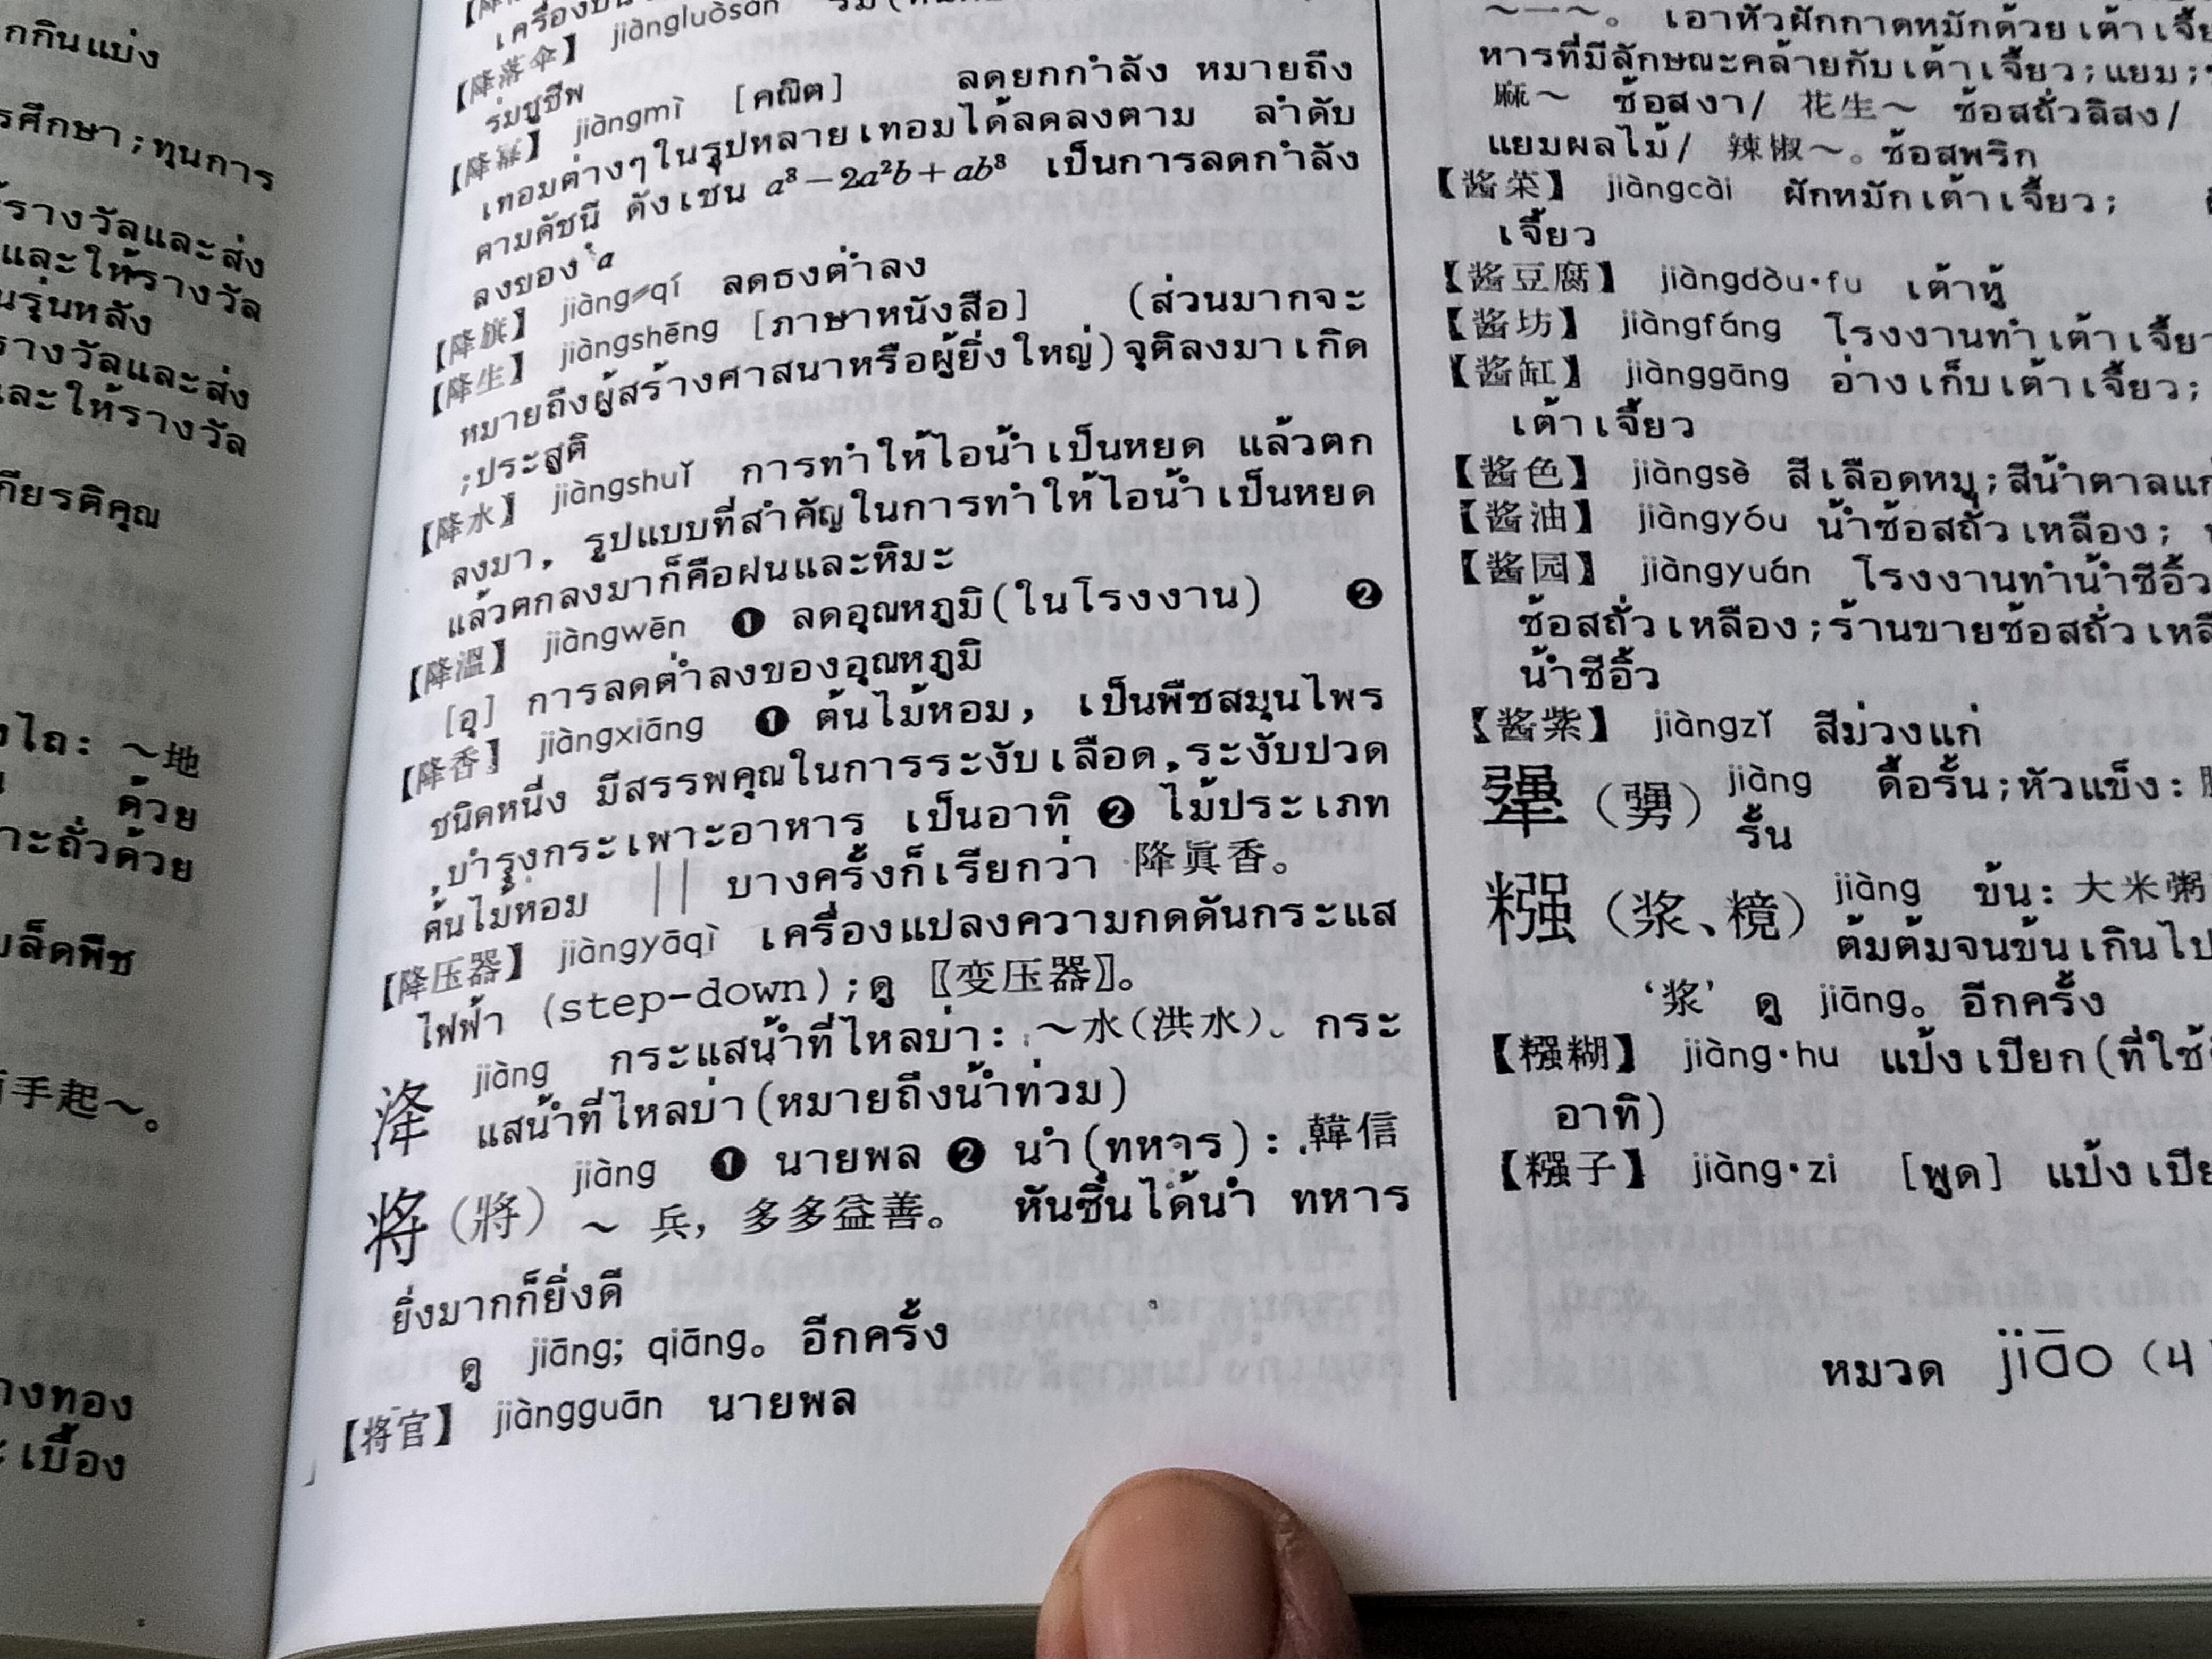 กกินแบ่ง
รศึกษา;ทุนการ
รางวัลและส่ง
และให้รางวัล
นรุ่นหลัง
รางวัลและส่ง
และให้รางวัล
กียรติคุณ
ไถ: ～地
ด้วย
าะถั่วด้วย
มล็ดพืช
手起～。
างทอง
เบื้อง
【降落伞】 jiàngluòsǎn
ร่มชูชีพ
【降幂】 jiàngmì [คณิต] ลดยกกำลัง หมายถึง
เทอมต่างๆในรูปหลายเทอมได้ลดลงตาม ลำดับ
ตามดัชนี ดังเช่น a³−2a²b+ab³ เป็นการลดกำลัง
ลงของ a
【降旗】 jiàng⫽qí ลดธงต่ำลง
【降生】 jiàngshēng [ภาษาหนังสือ] (ส่วนมากจะ
หมายถึงผู้สร้างศาสนาหรือผู้ยิ่งใหญ่)จุติลงมาเกิด
;ประสูติ
【降水】 jiàngshuǐ การทำให้ไอน้ำเป็นหยด แล้วตก
ลงมา, รูปแบบที่สำคัญในการทำให้ไอน้ำเป็นหยด
แล้วตกลงมาก็คือฝนและหิมะ
【降温】 jiàngwēn ❶ ลดอุณหภูมิ(ในโรงงาน) ❷
[อุ] การลดต่ำลงของอุณหภูมิ
【降香】 jiàngxiāng ❶ ต้นไม้หอม, เป็นพืชสมุนไพร
ชนิดหนึ่ง มีสรรพคุณในการระงับเลือด,ระงับปวด
,บำรุงกระเพาะอาหาร เป็นอาทิ ❷ ไม้ประเภท
ต้นไม้หอม || บางครั้งก็เรียกว่า 降真香。
【降压器】 jiàngyāqì เครื่องแปลงความกดดันกระแส
ไฟฟ้า (step-down);ดู 〖变压器〗。
洚 jiàng กระแสน้ำที่ไหลบ่า: ～水(洪水)。 กระ
แสน้ำที่ไหลบ่า(หมายถึงน้ำท่วม)
将(將) jiàng ❶ นายพล ❷ นำ(ทหาร): 韓信
～ 兵, 多多益善。 หันซิ่นได้นำ ทหาร
ยิ่งมากก็ยิ่งดี
ดู jiāng; qiāng。 อีกครั้ง
【将官】 jiàngguān นายพล
～一～。 เอาหัวผักกาดหมักด้วยเต้าเจี้ย
หารที่มีลักษณะคล้ายกับเต้าเจี้ยว;แยม;
麻～ ซ้อสงา/ 花生～ ซ้อสถั่วลิสง/
แยมผลไม้/ 辣椒～。ซ้อสพริก
【酱菜】 jiàngcài ผักหมักเต้าเจี้ยว;
เจี้ยว
【酱豆腐】 jiàngdòu·fu เต้าหู้
【酱坊】 jiàngfáng โรงงานทำเต้าเจี้ย
【酱缸】 jiànggāng อ่างเก็บเต้าเจี้ยว;
เต้าเจี้ยว
【酱色】 jiàngsè สีเลือดหมู;สีน้ำตาลแก่
【酱油】 jiàngyóu น้ำซ้อสถั่วเหลือง;
【酱园】 jiàngyuán โรงงานทำน้ำซีอิ้ว
ซ้อสถั่วเหลือง;ร้านขายซ้อสถั่วเหลื
น้ำซีอิ้ว
【酱紫】 jiàngzǐ สีม่วงแก่
犟(勥) jiàng ดื้อรั้น;หัวแข็ง:
รั้น
糨(浆、糡) jiàng ข้น: 大米粥
ต้มต้มจนข้นเกินไป
‘浆’ ดู jiāng。 อีกครั้ง
【糨糊】 jiàng·hu แป้งเปียก(ที่ใช้
อาทิ)
【糨子】 jiàng·zi [พูด] แป้งเปีย
หมวด jiāo (4